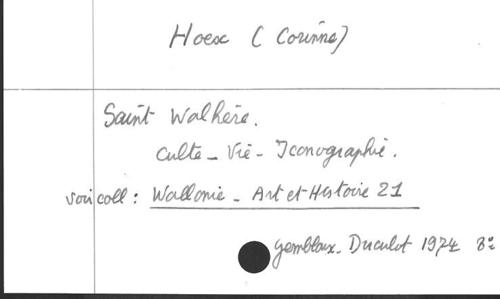 Hoex (Corinne)
Saint Walhère.
Culte - Vie - Iconographie.
voir coll : Wallonie - Art et Histoire 21
Gembloux - Duculot 1974 8°